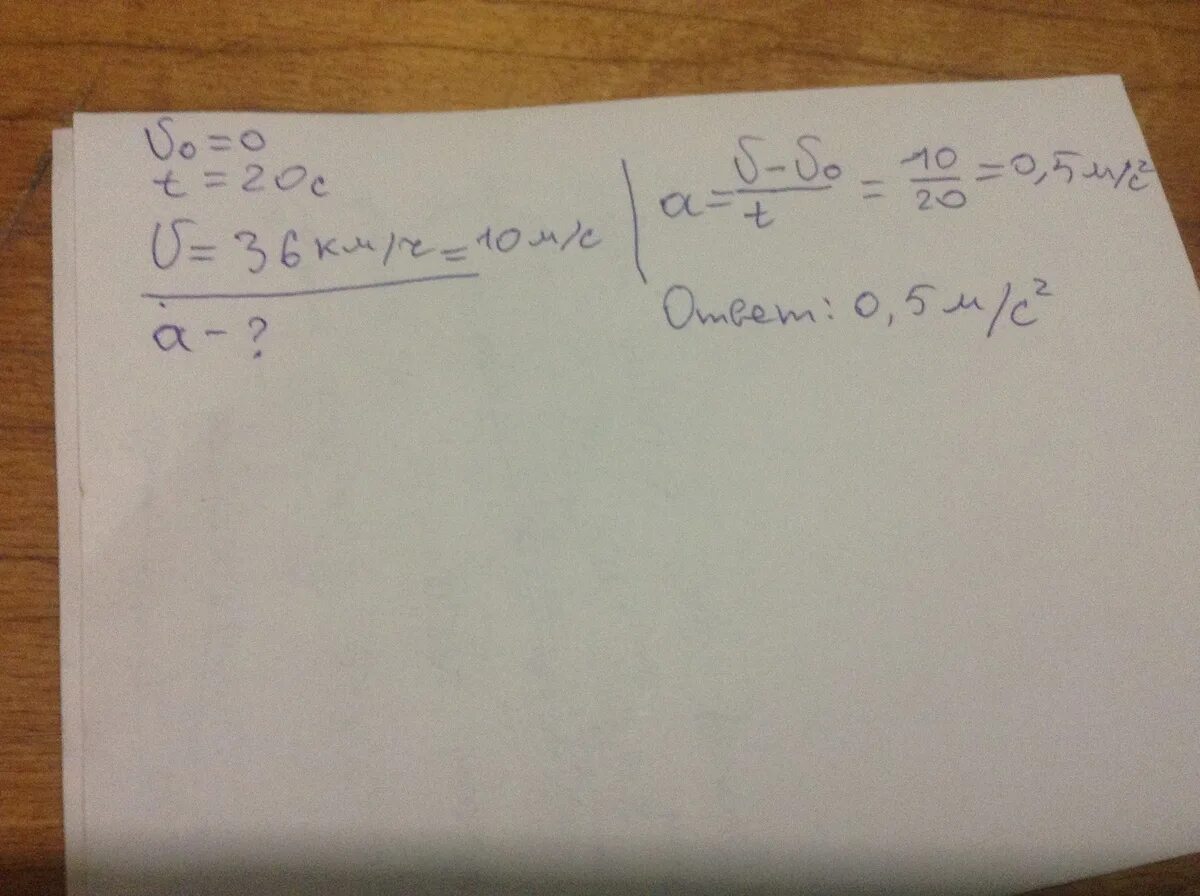 υ₀ = 0
t = 20 с
υ = 36 км/ч = 10 м/с
a - ?
a = (υ - υ₀)/t = 10/20 = 0,5 м/с²
Ответ: 0,5 м/с²